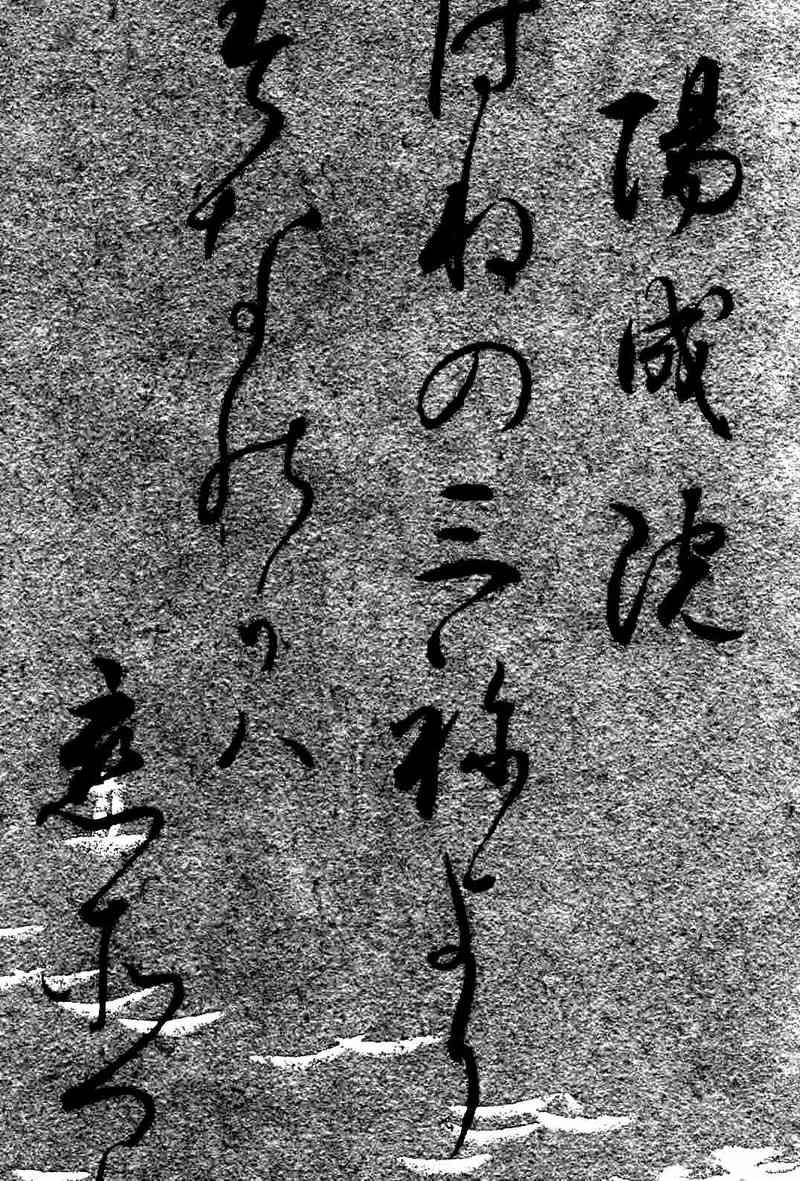 陽成院
はねの三祢より
みなのかハ
恋そつ